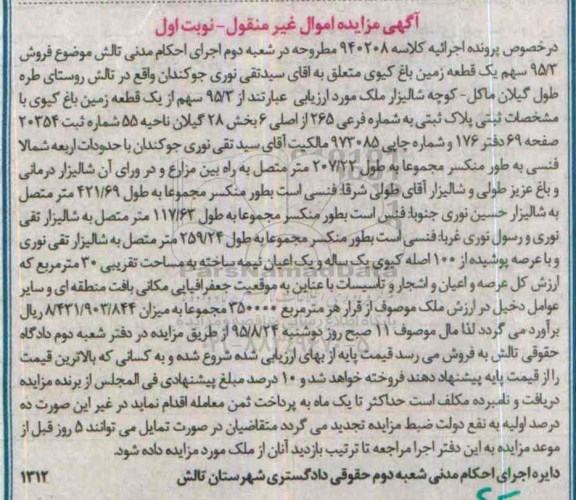 آگهی مزایده اموال غیر منقول - نوبت اول
درخصوص پرونده اجرائیه کلاسه ۹۴۰۲۰۸ مطروحه در شعبه دوم اجرای احکام مدنی تالش موضوع فروش
۹۵/۳ سهم یک قطعه زمین باغ کیوی متعلق به اقای سیدتقی نوری جوکندان واقع در تالش روستای طره
طول گیلان ماکل - کوچه شالیزار ملک مورد ارزیابی عبارتند از ۹۵/۳ سهم از یک قطعه زمین باغ کیوی با
مشخصات ثبتی پلاک ثبتی به شماره فرعی ۲۶۵ از اصلی ۶ بخش ۲۸ گیلان ناحیه ۵۵ شماره ثبت ۲۰۳۵۴
صفحه ۶۹ دفتر ۱۷۶ و شماره چاپی ۹۷۳۰۸۵ مالکیت آقای سید تقی نوری جوکندان با حدودات اربعه شمالا
فنسی به طور منکسر مجموعا به طول ۲۰۷/۲۲ متر متصل به راه بین مزارع و در ورای آن شالیزار درمانی
و باغ عزیز طولی و شالیزار آقای طولی شرقا: فنسی است بطور منکسر مجموعا به طول ۴۲۱/۶۹ متر متصل
به شالیزار حسین نوری جنوبا: فنس است بطور منکسر مجموعا به طول ۱۱۷/۶۳ متر متصل به شالیزار تقی
نوری و رسول نوری غربا: فنسی است بطور منکسر مجموعا به طول ۲۵۹/۲۴ متر متصل به شالیزار تقی نوری
و با عرصه پوشیده از ۱۰۰ اصله کیوی یک ساله و یک اعیان نیمه ساخته به مساحت تقریبی ۳۰ مترمربع که
ارزش کل عرصه و اعیان و اشجار و تاسیسات با عناین به موقعیت جعفرافیایی مکانی بافت منطقه ای و سایر
عوامل دخیل در ارزش ملک موصوف از قرار هر مترمربع ۳۵۰۰۰۰ مجموعا به میزان ۸/۴۳۱/۹۰۳/۸۴۴ ریال
برآورد می گردد لذا مال موصوف ۱۱ صبح روز دوشنبه ۹۵/۸/۲۴ از طریق مزایده در دفتر شعبه دوم دادگاه
حقوقی تالش به فروش می رسد قیمت پایه از بهای ارزیابی شده شروع شده و به کسانی که بالاترین قیمت
را از قیمت پایه پیشنهاد دهند فروخته خواهد شد و ۱۰ درصد مبلغ پیشنهادی فی المجلس از برنده مزایده
دریافت و نامبرده مکلف است حداکثر تا یک ماه به پرداخت ثمن معامله اقدام نماید در غیر این صورت ده
درصد اولیه به نفع دولت ضبط مزایده تجدید می گردد متقاضیان در صورت تمایل می توانند ۵ روز قبل از
موعد مزایده به این دفتر اجرا مراجعه تا ترتیب بازدید آنان از ملک مورد مزایده داده شود.
دایره اجرای احکام مدنی شعبه دوم حقوقی دادگستری شهرستان تالش ۱۳۱۲